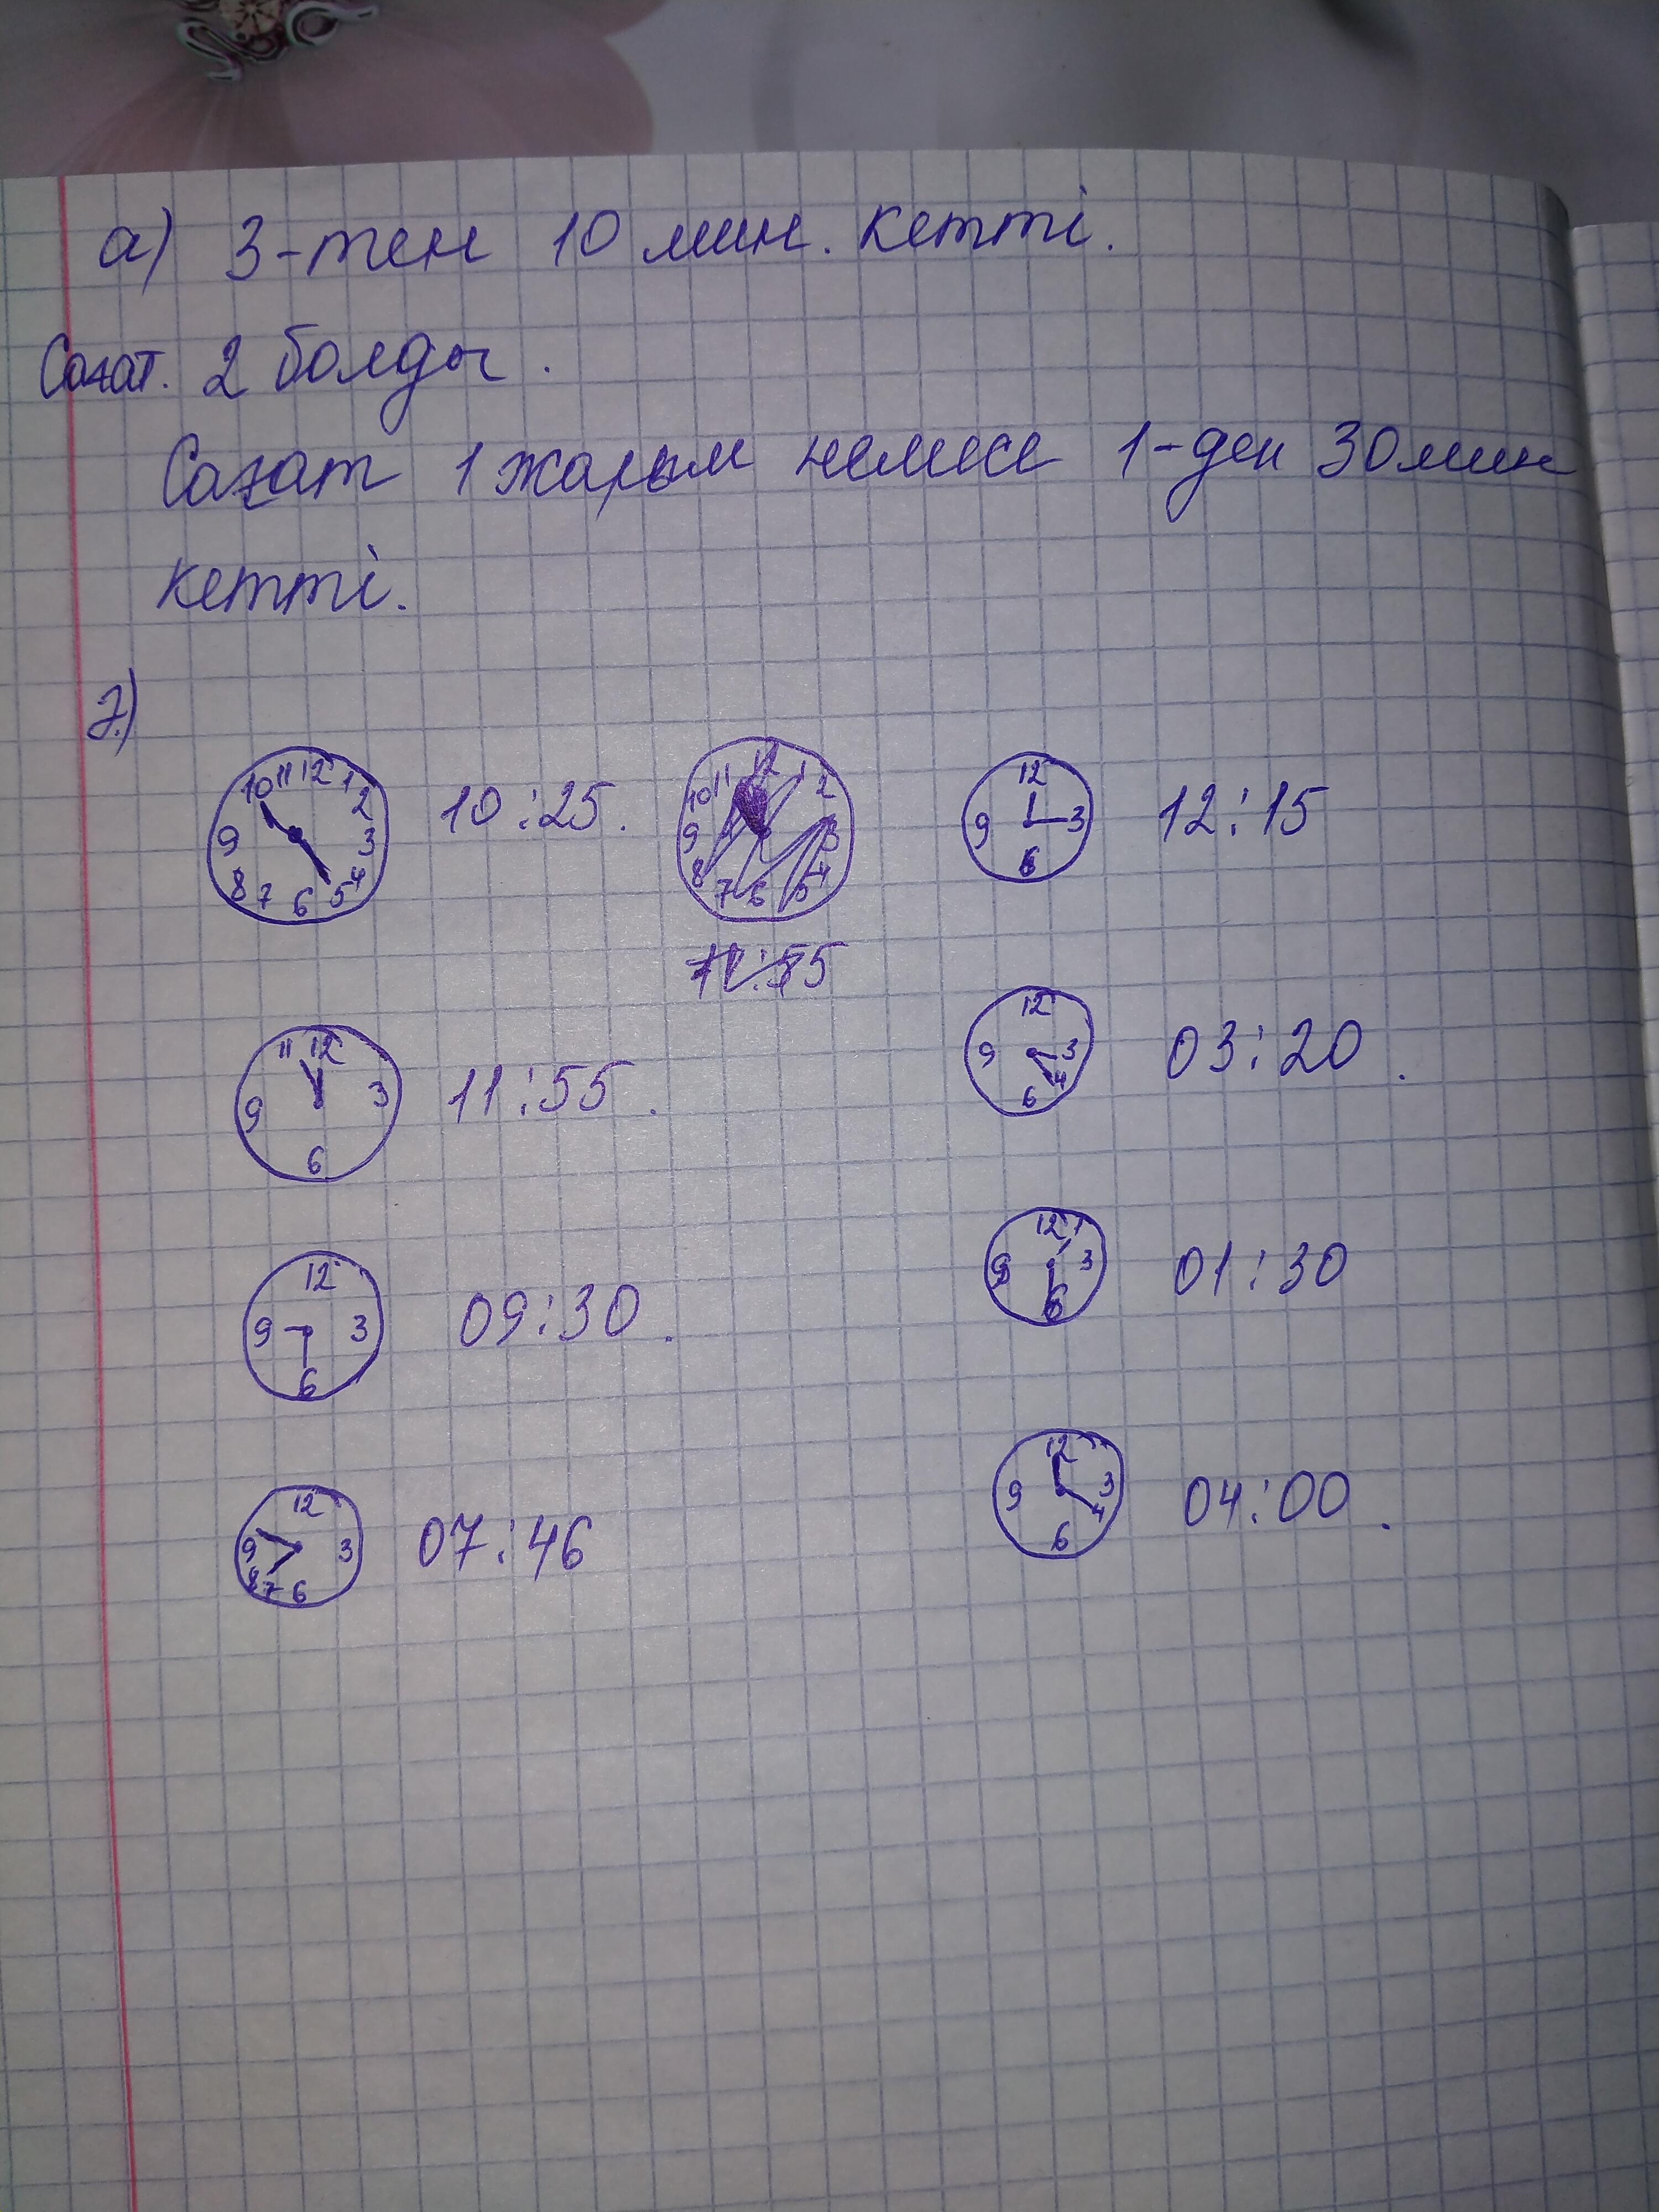 а) 3-тен 10 мин. кетті.
Сағат. 2 болды.
Сағат 1 жарым немесе 1-ден 30 мин
кетті.
2)
10 11 12 1 2 3 4 5 6 7 8 9
10:25.
10 11 12 1 2 3 4 5 6 7 8 9
12 3 6 9
12:15
11 12 3 6 9
11:55.
12 3 4 6 9
03:20.
12 3 6 9
09:30.
12 1 3 6 9
01:30
12 3 6 7 8 9
07:46
12 3 4 6 9
04:00.